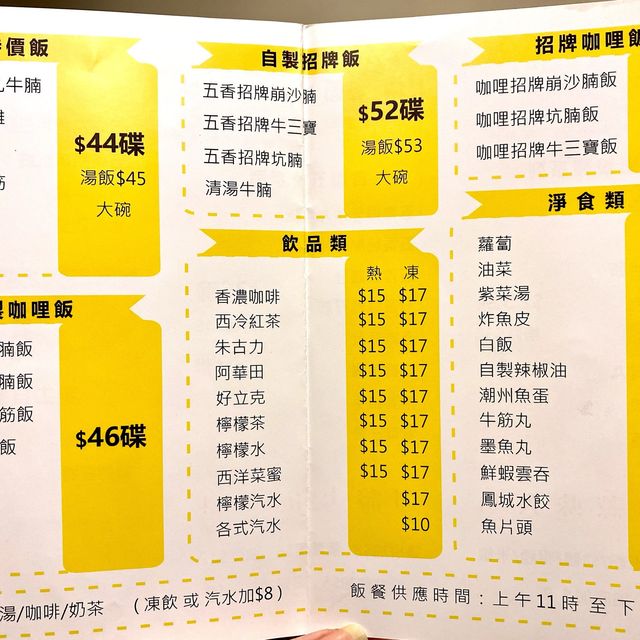 價飯
牛腩
$44碟
湯飯$45
大碗
咖喱飯
腩飯
腩飯
筋飯
飯
$46碟
自製招牌飯
五香招牌崩沙腩
五香招牌牛三寶
五香招牌坑腩
清湯牛腩
$52碟
湯飯$53
大碗
飲品類
熱 凍
香濃咖啡 $15 $17
西冷紅茶 $15 $17
朱古力 $15 $17
阿華田 $15 $17
好立克 $15 $17
檸檬茶 $15 $17
檸檬水 $15 $17
西洋菜蜜 $15 $17
檸檬汽水 $17
各式汽水 $10
招牌咖喱飯
咖哩招牌崩沙腩飯
咖哩招牌坑腩飯
咖哩招牌牛三寶飯
淨食類
蘿蔔
油菜
紫菜湯
炸魚皮
白飯
自製辣椒油
潮州魚蛋
牛筋丸
墨魚丸
鮮蝦雲吞
鳳城水餃
魚片頭
湯/咖啡/奶茶 (凍飲或汽水加$8)
飯餐供應時間:上午11時至下